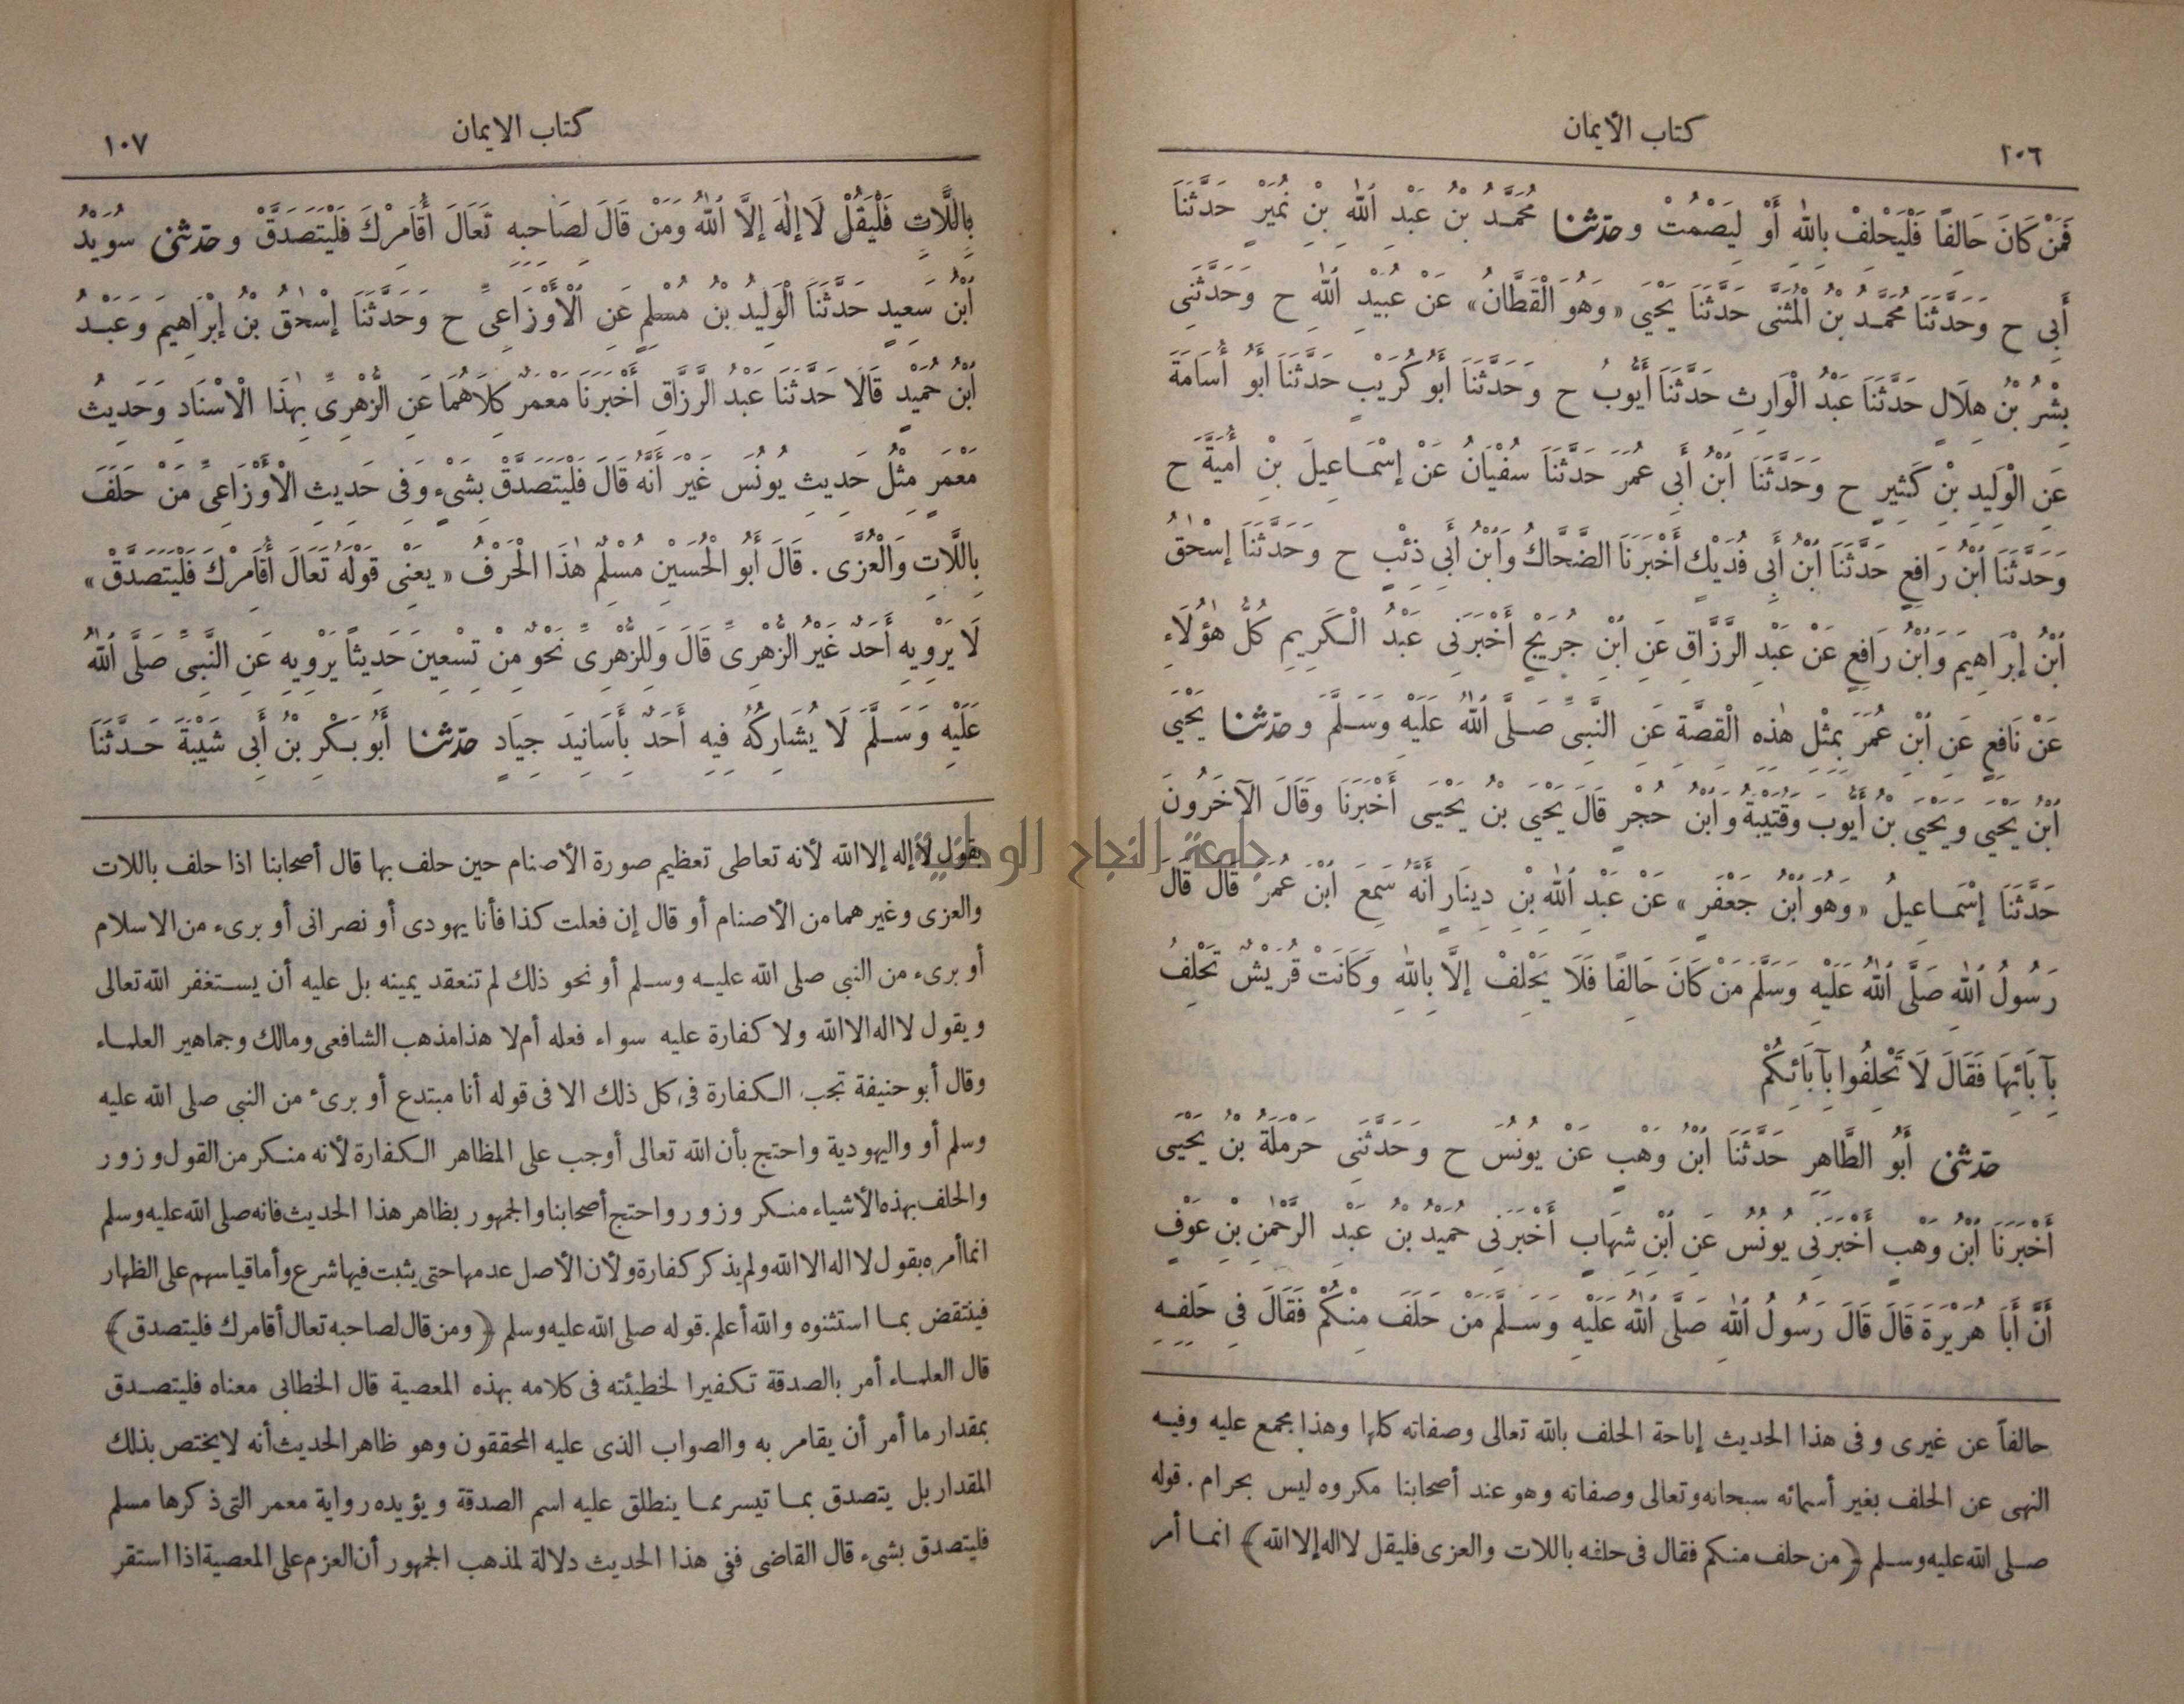 كتاب الأيمان
١٠٦
فَمَنْ كَانَ حَالِفًا فَلْيَحْلِفْ بِاللهِ أَوْ لِيَصْمُتْ وحدثنا مُحَمَّدُ بْنُ عَبْدِ اللهِ بْنِ نُمَيْرٍ حَدَّثَنَا
أَبِي ح وَحَدَّثَنَا مُحَمَّدُ بْنُ الْمُثَنَّى حَدَّثَنَا يَحْيَى «وَهُوَ الْقَطَّانُ» عَنْ عُبَيْدِ اللهِ ح وَحَدَّثَنِى
بِشْرُ بْنُ هِلَالٍ حَدَّثَنَا عَبْدُ الْوَارِثِ حَدَّثَنَا أَيُّوبُ ح وَحَدَّثَنَا أَبُو كُرَيْبٍ حَدَّثَنَا أَبُو أُسَامَةَ
عَنِ الْوَلِيدِ بْنِ كَثِيرٍ ح وَحَدَّثَنَا ابْنُ أَبِي عُمَرَ حَدَّثَنَا سُفْيَانُ عَنْ إِسْمَاعِيلَ بْنِ أُمَيَّةَ ح
وَحَدَّثَنَا ابْنُ رَافِعٍ حَدَّثَنَا ابْنُ أَبِي فُدَيْكٍ أَخْبَرَنَا الضَّحَّاكُ وَابْنُ أَبِي ذِئْبٍ ح وَحَدَّثَنَا إِسْحٰقُ
ابْنُ إِبْرَاهِيمَ وَابْنُ رَافِعٍ عَنْ عَبْدِ الرَّزَّاقِ عَنِ ابْنِ جُرَيْجٍ أَخْبَرَنِى عَبْدُ الْكَرِيمِ كُلُّ هٰؤُلَاءِ
عَنْ نَافِعٍ عَنِ ابْنِ عُمَرَ بِمِثْلِ هٰذِهِ الْقِصَّةِ عَنِ النَّبِىِّ صَلَّى اللهُ عَلَيْهِ وَسَلَّمَ وحدثنا يَحْيَى
ابْنُ يَحْيَى وَيَحْيَى بْنُ أَيُّوبَ وَقُتَيْبَةُ وَابْنُ حُجْرٍ قَالَ يَحْيَى بْنُ يَحْيَى أَخْبَرَنَا وَقَالَ الْآخَرُونَ
حَدَّثَنَا إِسْمَاعِيلُ «وَهُوَ ابْنُ جَعْفَرٍ» عَنْ عَبْدِ اللهِ بْنِ دِينَارٍ أَنَّهُ سَمِعَ ابْنَ عُمَرَ قَالَ قَالَ
رَسُولُ اللهِ صَلَّى اللهُ عَلَيْهِ وَسَلَّمَ مَنْ كَانَ حَالِفًا فَلَا يَحْلِفْ إِلَّا بِاللهِ وَكَانَتْ قُرَيْشٌ تَحْلِفُ
بِآبَائِهَا فَقَالَ لَا تَحْلِفُوا بِآبَائِكُمْ
حدثنى أَبُو الطَّاهِرِ حَدَّثَنَا ابْنُ وَهْبٍ عَنْ يُونُسَ ح وَحَدَّثَنِى حَرْمَلَةُ بْنُ يَحْيَى
أَخْبَرَنَا ابْنُ وَهْبٍ أَخْبَرَنِى يُونُسُ عَنِ ابْنِ شِهَابٍ أَخْبَرَنِى حُمَيْدُ بْنُ عَبْدِ الرَّحْمٰنِ بْنِ عَوْفٍ
أَنَّ أَبَا هُرَيْرَةَ قَالَ قَالَ رَسُولُ اللهِ صَلَّى اللهُ عَلَيْهِ وَسَلَّمَ مَنْ حَلَفَ مِنْكُمْ فَقَالَ فِى حَلِفِهِ
حالفاً عن غيرى وفى هذا الحديث إباحة الحلف بالله تعالى وصفاته كلها وهذا مجمع عليه وفيه
النهى عن الحلف بغير أسمائه سبحانه وتعالى وصفاته وهو عند أصحابنا مكروه ليس بحرام . قوله
صلى الله عليه وسلم ﴿من حلف منكم فقال فى حلفه باللات والعزى فليقل لا اله إلا الله﴾ انما أمر
كتاب الايمان
١٠٧
بِاللَّاتِ فَلْيَقُلْ لَا إِلٰهَ إِلَّا اللهُ وَمَنْ قَالَ لِصَاحِبِهِ تَعَالَ أُقَامِرْكَ فَلْيَتَصَدَّقْ وحدثنى سُوَيْدُ
ابْنُ سَعِيدٍ حَدَّثَنَا الْوَلِيدُ بْنُ مُسْلِمٍ عَنِ الْأَوْزَاعِىِّ ح وَحَدَّثَنَا إِسْحٰقُ بْنُ إِبْرَاهِيمَ وَعَبْدُ
ابْنُ حُمَيْدٍ قَالَا حَدَّثَنَا عَبْدُ الرَّزَّاقِ أَخْبَرَنَا مَعْمَرٌ كِلَاهُمَا عَنِ الزُّهْرِىِّ بِهٰذَا الْاسْنَادِ وَحَدِيثُ
مَعْمَرٍ مِثْلُ حَدِيثِ يُونُسَ غَيْرَ أَنَّهُ قَالَ فَلْيَتَصَدَّقْ بِشَىْءٍ وَفِى حَدِيثِ الْأَوْزَاعِىِّ مَنْ حَلَفَ
بِاللَّاتِ وَالْعُزَّى . قَالَ أَبُو الْحُسَيْنِ مُسْلِمٌ هٰذَا الْحَرْفُ «يَعْنِى قَوْلَهُ تَعَالَ أُقَامِرْكَ فَلْيَتَصَدَّقْ»
لَا يَرْوِيهِ أَحَدٌ غَيْرُ الزُّهْرِىِّ قَالَ وَلِلزُّهْرِىِّ نَحْوٌ مِنْ تِسْعِينَ حَدِيثًا يَرْوِيهِ عَنِ النَّبِىِّ صَلَّى اللهُ
عَلَيْهِ وَسَلَّمَ لَا يُشَارِكُهُ فِيهِ أَحَدٌ بِأَسَانِيدَ جِيَادٍ حدثنا أَبُو بَكْرِ بْنُ أَبِى شَيْبَةَ حَدَّثَنَا
بقول لا إله إلا الله لأنه تعاطى تعظيم صورة الأصنام حين حلف بها قال أصحابنا اذا حلف باللات
والعزى وغيرهما من الأصنام أو قال إن فعلت كذا فأنا يهودى أو نصرانى أو برىء من الاسلام
أو برىء من النبى صلى الله عليه وسلم أو نحو ذلك لم تنعقد يمينه بل عليه أن يستغفر الله تعالى
ويقول لا اله الا الله ولا كفارة عليه سواء فعله أم لا هذا مذهب الشافعى ومالك وجماهير العلماء
وقال أبو حنيفة تجب الكفارة فى كل ذلك الا فى قوله أنا مبتدع أو برىء من النبى صلى الله عليه
وسلم أو واليهودية واحتج بأن الله تعالى أوجب على المظاهر الكفارة لأنه منكر من القول وزور
والحلف بهذه الأشياء منكر وزور واحتج أصحابنا والجمهور بظاهر هذا الحديث فانه صلى الله عليه وسلم
انما أمره بقول لا اله الا الله ولم يذكر كفارة ولأن الأصل عدمها حتى يثبت فيها شرع وأما قياسهم على الظهار
فينتقض بما استثنوه والله أعلم. قوله صلى الله عليه وسلم ﴿ومن قال لصاحبه تعال أقامرك فليتصدق﴾
قال العلماء أمر بالصدقة تكفيرا لخطيئته فى كلامه بهذه المعصية قال الخطابى معناه فليتصدق
بمقدار ما أمر أن يقامر به والصواب الذى عليه المحققون وهو ظاهر الحديث أنه لا يختص بذلك
المقدار بل يتصدق بما تيسر مما ينطلق عليه اسم الصدقة ويؤيده رواية معمر التى ذكرها مسلم
فليتصدق بشىء قال القاضى ففى هذا الحديث دلالة لمذهب الجمهور أن العزم على المعصية اذا استقر
جامعة النجاح الوطنية